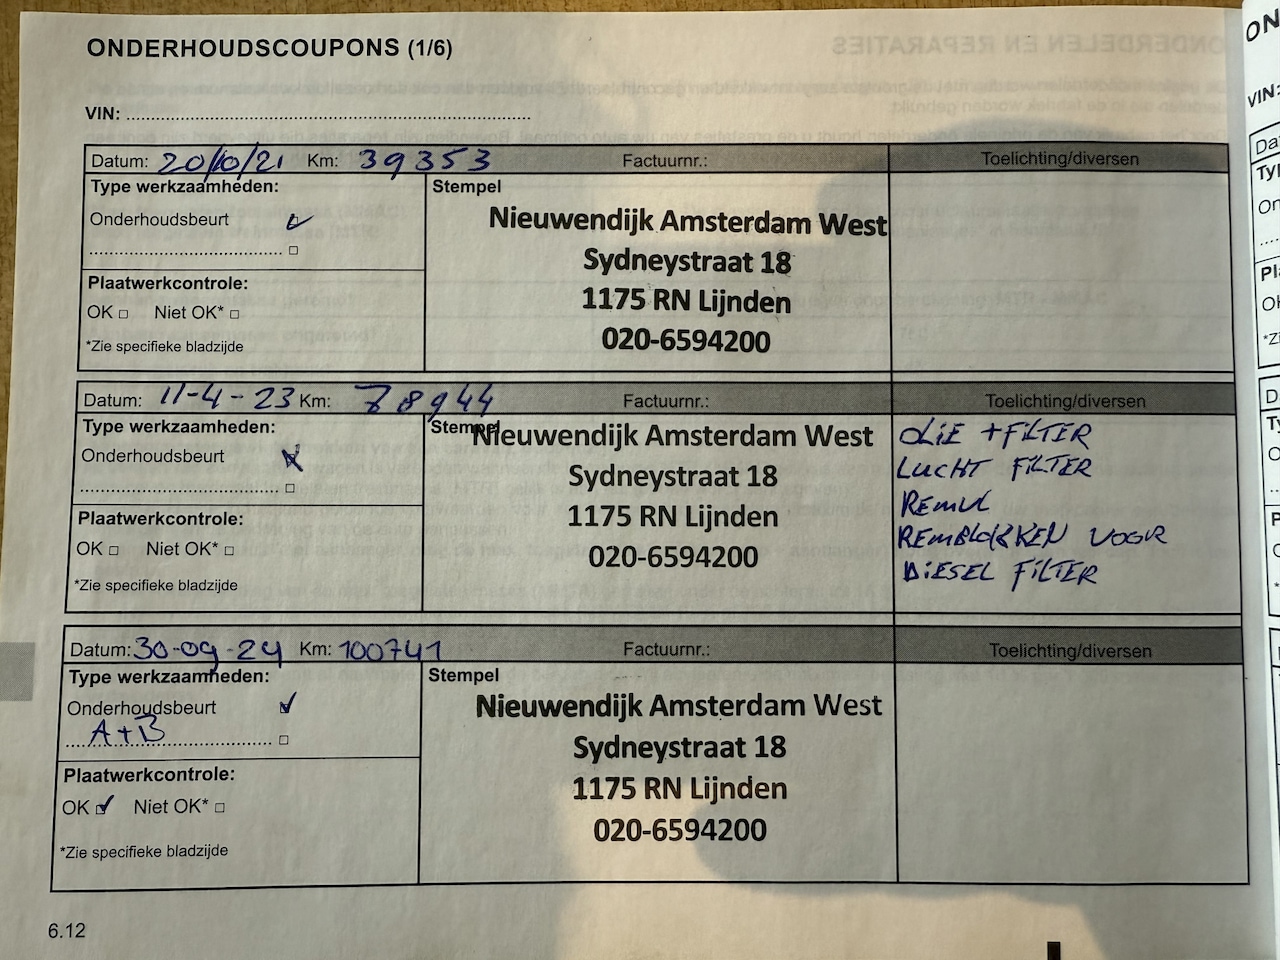 ONDERHOUDSCOUPONS (1/6)
VIN:
Datum: 20/10/21 Km: 39353 Factuurnr.: Toelichting/diversen
Type werkzaamheden: Stempel
Onderhoudsbeurt
Plaatwerkcontrole:
OK Niet OK*
*Zie specifieke bladzijde
Nieuwendijk Amsterdam West
Sydneystraat 18
1175 RN Lijnden
020-6594200
Datum: 11-4-23 Km: 78944 Factuurnr.: Toelichting/diversen
Type werkzaamheden: Stempel
Onderhoudsbeurt
Plaatwerkcontrole:
OK Niet OK*
*Zie specifieke bladzijde
Nieuwendijk Amsterdam West
Sydneystraat 18
1175 RN Lijnden
020-6594200
OLIE + FILTER
LUCHT FILTER
REMBLOKKEN VOOR
DIESEL FILTER
Datum: 30-09-24 Km: 100741 Factuurnr.: Toelichting/diversen
Type werkzaamheden: Stempel
Onderhoudsbeurt
A+B
Plaatwerkcontrole:
OK Niet OK*
*Zie specifieke bladzijde
Nieuwendijk Amsterdam West
Sydneystraat 18
1175 RN Lijnden
020-6594200
6.12
VIN: